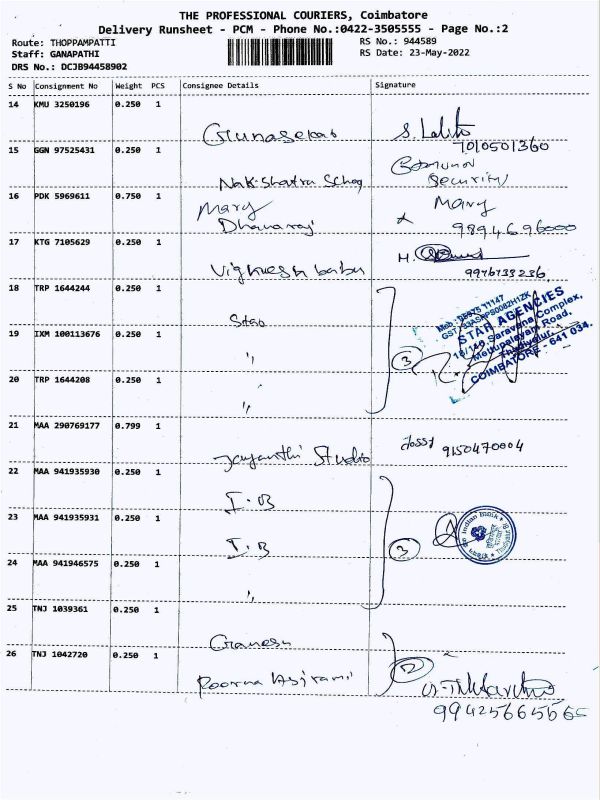 THE PROFESSIONAL COURIERS, Coimbatore
Delivery Runsheet - PCM - Phone No.:0422-3505555 - Page No.:2
Route: THOPPAMPATTI RS No.: 944589
Staff: GANAPATHI RS Date: 23-May-2022
DRS No.: DCJB94458902
S No Consignment No Weight PCS Consignee Details Signature
14 KMU 3250196 0.250 1
Gunasekar S. Lalita
7010501360
15 GGN 97525431 0.250 1
Nakshatra Security
16 PDK 5969611 0.750 1
Mary Mary
Dhanaraj 9894696000
17 KTG 7105629 0.250 1
Vignesh babu M.
9976733236
18 TRP 1644244 0.250 1
Star
STAR AGENCIES
Saravana Complex,
Mettupalayam Road,
Thudiyalur,
COIMBATORE - 641 034.
19 IXM 100113676 0.250 1
" 3
20 TRP 1644208 0.250 1
"
21 MAA 290769177 0.799 1
Jayanthi Studio 9150470004
22 MAA 941935930 0.250 1
I.B
23 MAA 941935931 0.250 1
I.B 3
Indian Bank
24 MAA 941946575 0.250 1
"
25 TNJ 1039361 0.250 1
Ganesh
26 TNJ 1042720 0.250 1
Poorna 2